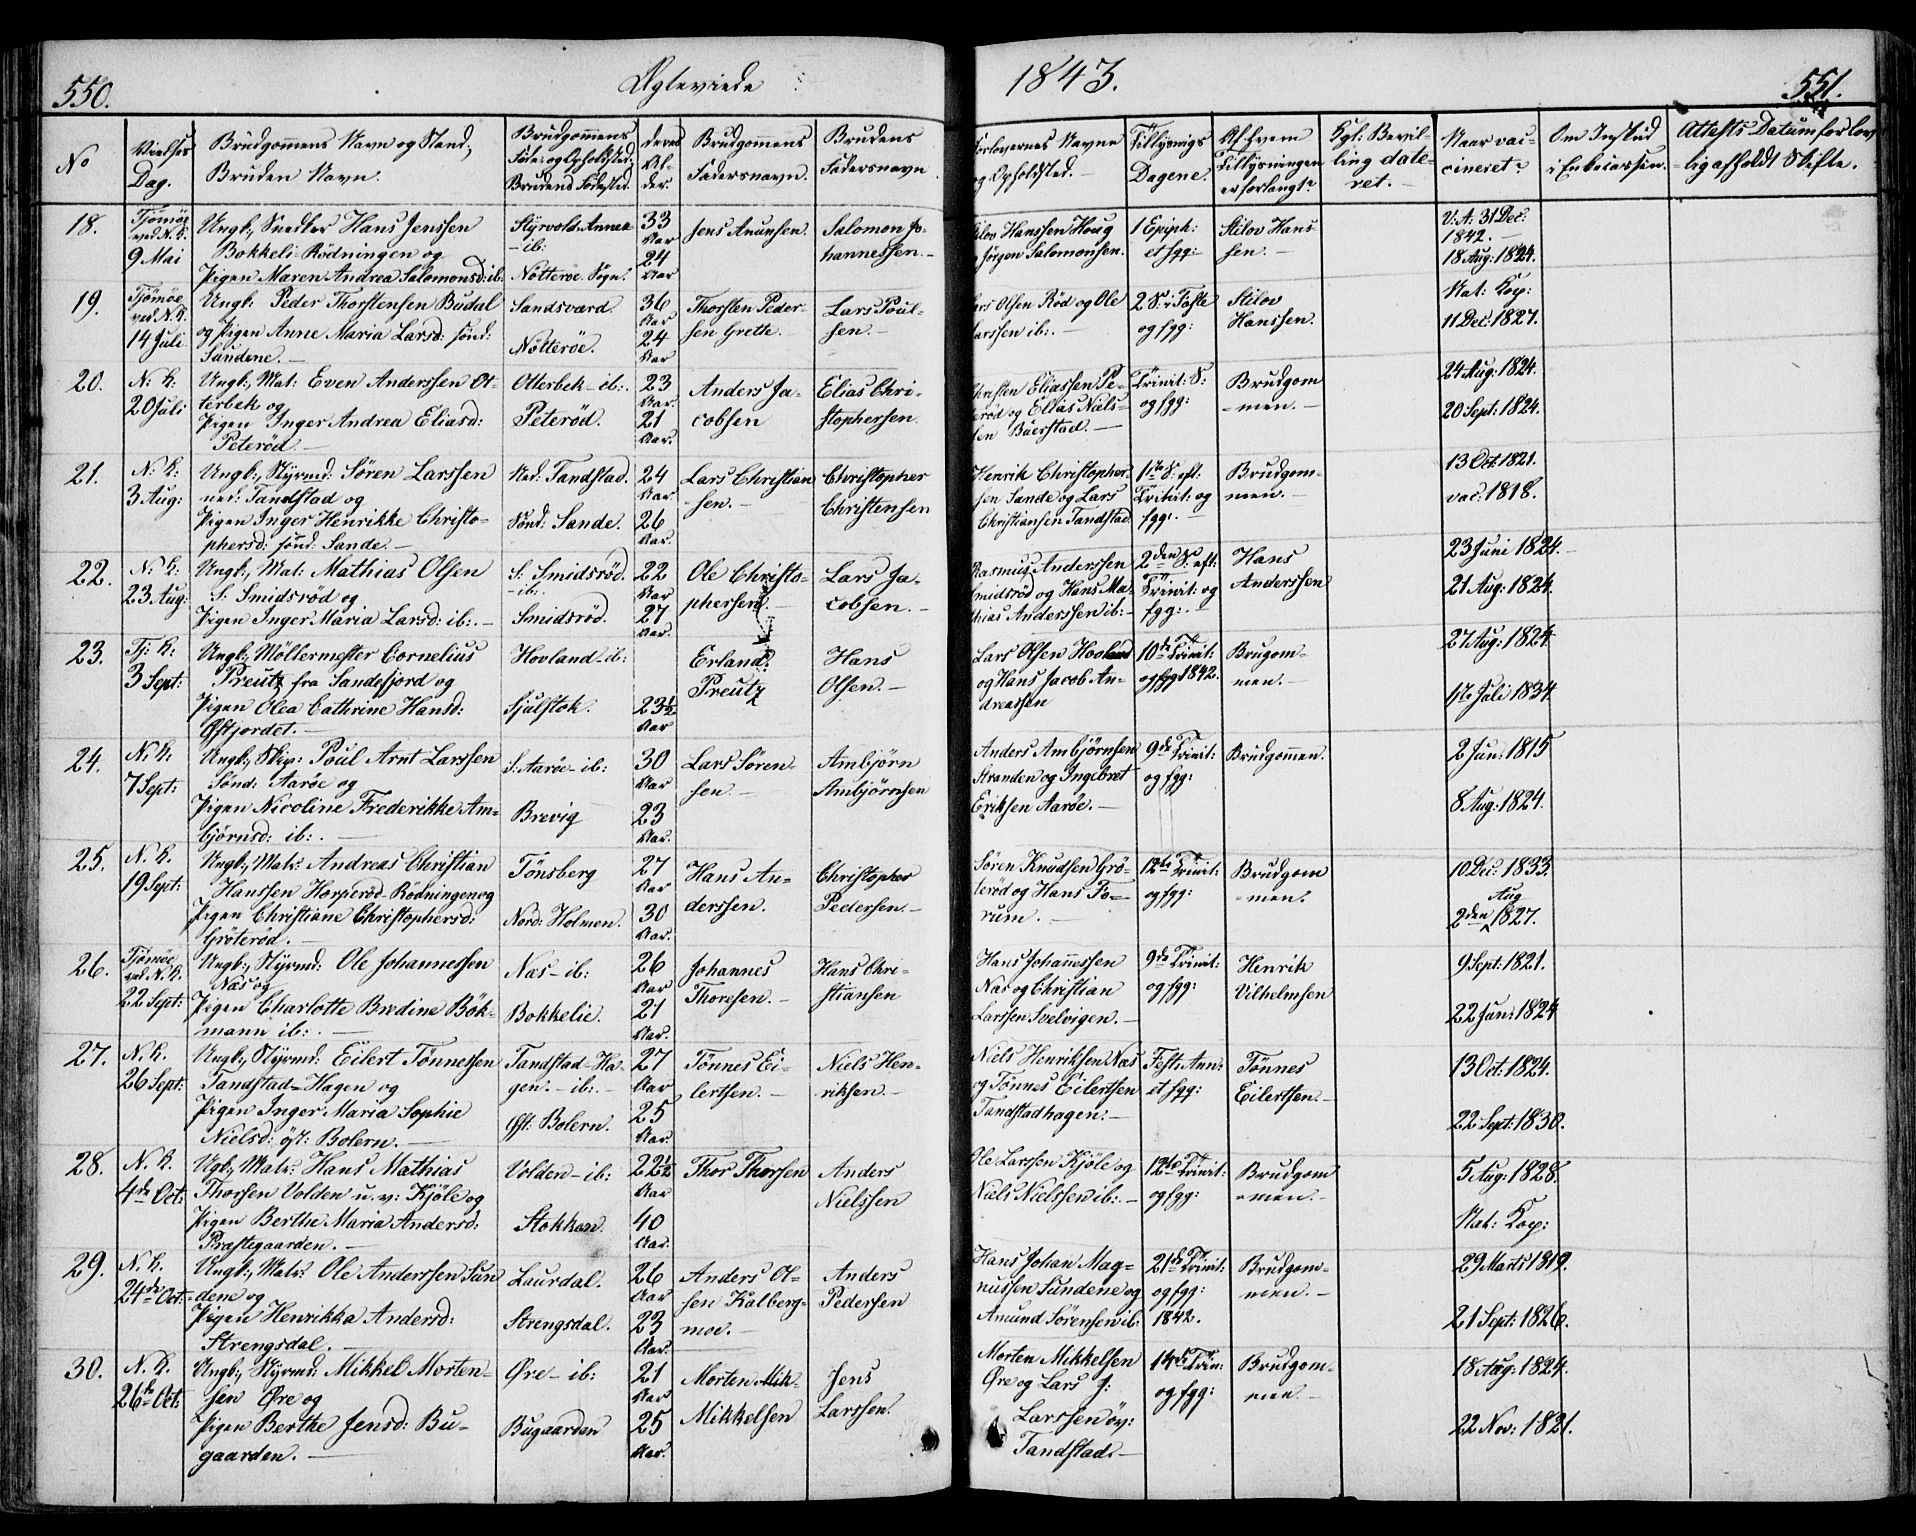 550.
Ægteviede
1843.
551.
No
Vielses Dag.
Brudgommens Navn og Stand, Bruden Navn.
Brudgommens Føde- og Opholdsted, Brudens Fødested.
deres Alder.
Brudgommens Fadersnavn.
Brudens Fadersnavn
Forlovernes Navne og Opholdsted.
Tillysnings Dagene.
Af hvem Tillysningen er forlangt?
Kgl: Bevilling dateret.
Naar vaccineret?
Om Indstid i Enkecassen.
Attests Datum for lovlig afholdt Skifte.
18.
Tjömöe ved N. K.
9 Mai
Ungk: Snedker Hans Jenssen
Bokkeli-Rödningen og
Pigen Maren Andrea Salomonsd: ib:
-ib:
Nötteröe Sogn.
33 Aar
24 Aar
Salomon Johannessen.
Stilov Hanssen Houg
Jörgen Salomonsen.
1 Epiph: et fgg:
Stilov Hanssen.
V: A: 31 Dec: 1842.
18 Aug: 1824.
19.
Tjömöe ved N. K.
14 Juli
Ungk: Peder Thorstensen Budal
og Pigen Anne Maria Larsd: sönd:
Sandene.
Sandsværd.
Nötteröe.
36 Aar
24 Aar
Thorsten Pedersen Grette.
Lars Poulsen.
Lars Olsen Röd og Ole
Larssen ib:
2 S: i Faste og fgg:
Stilov Hanssen.
Nat: Kop:
11 Dec: 1827.
20.
N: K:
20 Juli
Ungk:, Mat: Even Anderssen Otterbek og
Pigen Inger Andrea Eliasd:
Peteröd.
Otterbek-ib:
Peteröd.
23 Aar.
21 Aar.
Anders Jacobsen
Elias Christophersen.
Christen Eliassen Peteröd og Elias Nielssen Buerstad.
Trinit: S: og fgg:
Brudgommen.
24 Aug: 1824.
20 Sept: 1824.
21.
N: K:
3 Aug:
Ungk:, Styrmd: Sören Larssen
ned: Tandstad og
Pigen Inger Henrikke Christophersd: sönd: Sande.
Ned: Tandstad.
Sönd: Sande.
24 Aar
26 Aar.
Lars Christiansen.
Christopher Christensen
Henrik Christophersen Sande og Lars
Christiansen Tandstad.
11te S: eft: Trinit: og fgg:
Brudgommen.
13 Oct: 1821.
vac: 1818.
22.
N: K:
23 Aug:
Ungk:, Mat: Mathias Olsen
S: Smidsröd og
Pigen Inger Maria Larsd: ib:
S: Smidsröd.
-ib:
Smidsröd.
22 Aar
27 Aar.
Ole Christophersen.
Lars Jacobsen.
Rasmus Anderssen
Smidsröd og Hans Mathias Anderssen ib:
2den S: eft: Trinit: og fgg:
Hans Anderssen
23 Juni 1824.
21 Aug: 1824.
23.
Tj: K:
3 Sept:
Ungk:, Möllermester Cornelius
Preutz fra Sandefjord og
Pigen Olea Cathrine Hansd:
Hovland-ib:
23½ Aar
Erland Preutz
Hans Olsen.
Lars Olsen Hovland
og Hans Jacob Andreassen
10de Trinit: og fgg: 1842.
Brugommen.
27 Aug: 1824.
Juli 1834
24.
N: K.
7 Sept:
Ungk:, Skip: Poul Arnt Larssen
Sönd: Aaröe og
Pigen Nicoline Frederikke Ambjörnsd: ib:
S: Aaröe-ib:
Brevig
30 Aar
23 Aar.
Lars Sörensen.
Ambjörn Ambjörnsen
Anders Ambjörnsen
Stranden og Ingebret
Eriksen Aaröe.
9de Trinit: og fgg:
Brudgommen.
2 Jun: 1815
8 Aug: 1824.
25.
N. K.
19 Sept:
Ungk:, Mat: Andreas Christian
Hanssen Horperöd-Rödningen og
Pigen Christiane Christophersd:
Gröteröd.
Tönsberg
Nord: Holmen.
27 Aar
30 Aar.
Hans Anderssen.
Christopher Pedersen.
Sören Knudsen Gröteröd og Hans Torum.
12te Trinit: og fgg:
Brudgommen.
10 Dec: 1833.
2den Aug 1827.
26.
Tjömöe ved N. K.
22 Sept:
Ungk:, Styrmd: Ole Johannessen
Næs og
Pigen Charlotte Bredine Bökmann ib:
Næs-ib:
Bokkelie.
26 Aar
21 Aar.
Johannes Thoresen.
Hans Christiansen
Hans Johannessen
Næs og Christian
Larssen Svelvigen.
9de Trinit: og fgg:
Henrik Vilhelmsen
9 Sept: 1821.
22 Jun: 1824
27.
N. K.
26 Sept:
Ungk:, Styrmd: Eilert Tönnessen
Tandstad-Hagen og
Pigen Inger Maria Sophie
Nielsd: öst: Bolern.
Tandstad-Hagen.-ib:
Øst: Bolern.
27 Aar
25 Aar.
Tönnes Eilertsen.
Niels Henriksen.
Niels Henriksen Næs
og Tönnes Eilertsen
Tandstadhagen.
Fest: Ann: et fgg:
Tönnes Eilertsen.
13 Oct: 1824.
22 Sept: 1830.
28.
N. K.
4de Oct:
Ugk:, Mat: Hans Mathias
Thorsen Volden u. v: Kjöle og
Pigen Berthe Maria Andersd:
Præstegaarden.
Volden-ib:
Stokken.
22½ Aar
40 Aar.
Thor Thorsen
Anders Nielssen
Ole Larssen Kjöle og
Niels Nielssen ib:
12te Trinit: og fgg:
Brudgommen.
5 Aug: 1828.
Nat: Kop:
29.
N. K.
24de Oct:
Ungk:, Mat: Ole Anderssen Sundene og
Pigen Henrikka Andersd:
Strengsdal.
Laurdal.
Strengsdal.
26 Aar
23 Aar.
Anders Olsen Kalbergmoe.
Anders Pedersen
Hans Johan Magnussen Sundene og
Amund Sörensen ib:
21de Trinit: og fgg: 1842.
Brudgommen.
29 Marts 1819.
21 Sept: 1826.
30.
N. K.
26te Oct:
Ungk:, Styrmd: Mikkel Mortensen Øre og
Pigen Berthe Jensd: Bugaarden.
Øre-ib:
Bugaarden
21 Aar
25 Aar.
Morten Mikkelsen
Jens Larssen.
Morten Mikkelsen
Øre og Lars J:
Larssen öv:
Tandstad.
14de Trin: og fgg:
Brudgommen.
18 Aug: 1824.
22 Nov: 1821.